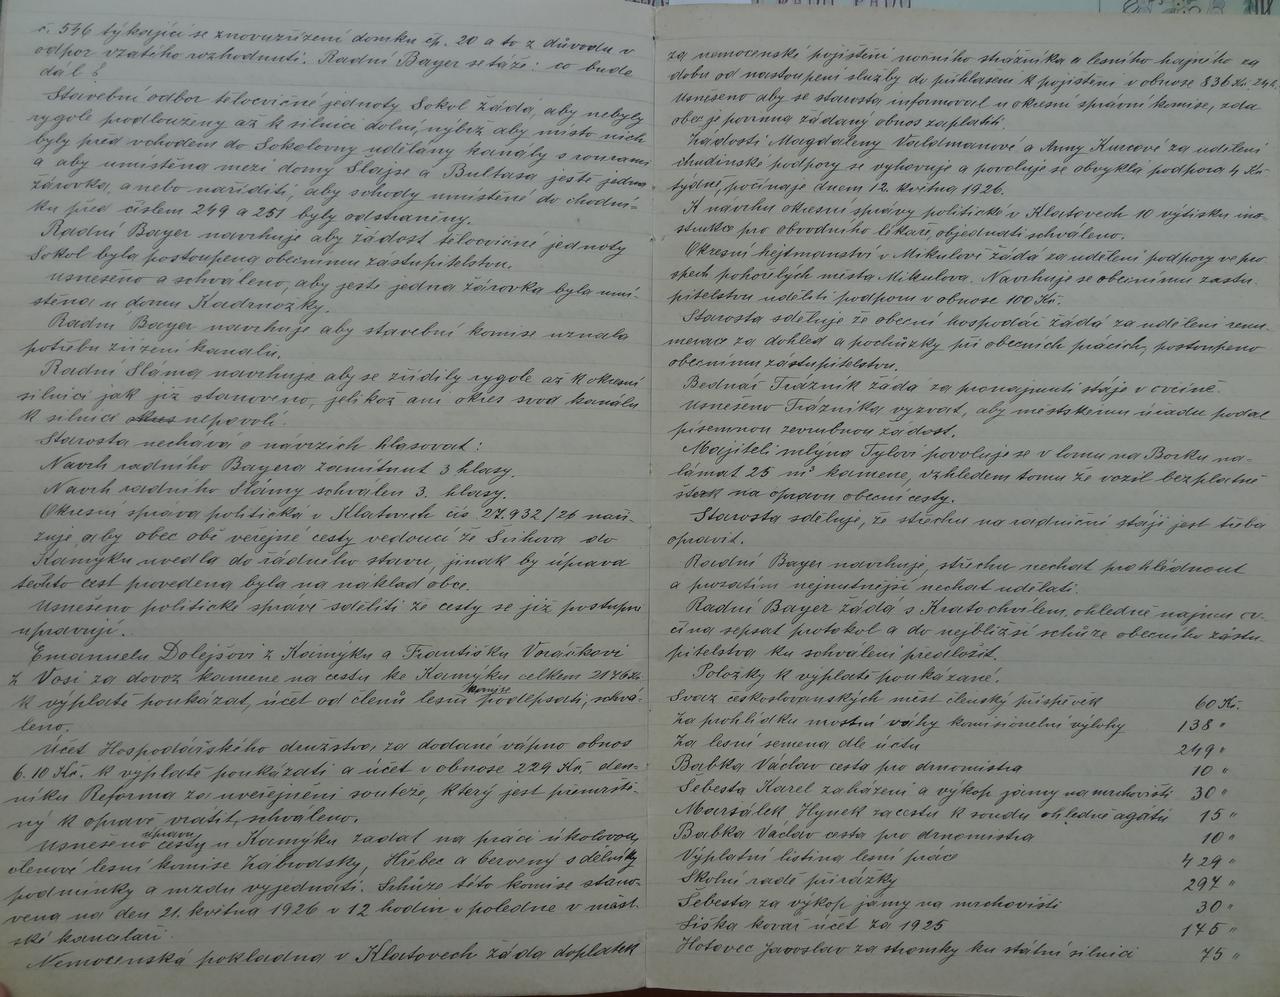 č. 546 týkající se znovuzřízení domku čp. 20 a to z důvodu v
odpor vzatého rozhodnutí. Radní Bayer se táže: co bude
dál?
Stavební odbor tělocvičné jednoty Sokol žádá, aby nebyly
rygole prodlouženy až k silnici dolní, nýbrž aby místo nich
byly před vchodem do Sokolovny udělány kanály s rourami
a aby umístěna mezi domy Šlajse a Bultasa ještě jedna
žárovka, a nebo naříditi, aby schody umístěné do chodní-
ku před číslem 249 a 251 byly odstraněny.
Radní Bayer navrhuje aby žádost tělocvičné jednoty
Sokol byla postoupena obecnímu zastupitelstvu.
Usnešeno a schváleno, aby ještě jedna žárovka byla umí-
stěna u domu Kadrnožky.
Radní Bayer navrhuje aby stavební komise uznala
potřebu zřízení kanálu.
Radní Sláma navrhuje aby se zřídily rygole až k okresní
silnici jak již stanoveno, jelikož ani okres svod kanálu
k silnici okres nepovolí.
Starosta nechává o návrzích hlasovat:
Návrh radního Bayera zamítnut 3 hlasy.
Návrh radního Slámy schválen 3. hlasy.
Okresní správa politická v Klatovech čís. 27.932/26 naři-
zuje aby obec obě veřejné cesty vedoucí ze Suhova do
Kamýku uvedla do řádného stavu, jinak by úprava
těchto cest provedena byla na náklad obce.
Usnešeno politické správě sděliti že cesty se již postupně
upravují.
Emanuelu Dolejšovi z Kamýku a Františku Voráčkovi
z Vosí za dovoz kamene na cestu ke Kamýku celkem 2176 Kč
k výplatě poukázat, účet od členů lesní komise podlepsati, schvá-
leno.
Účet Hospodářského družstva za dodané vápno obnos
6.10 Kč. k výplatě poukázati a účet v obnose 229 Kč. den-
níku Reforma za uveřejnění soutěže, který jest přemrště-
ný k opravě vrátit, schváleno.
Usnešeno úpravu cesty u Kamýku zadat na práci úkolovou
členové lesní komise Zábrodský, Hřebec a Červený s dělníky
podmínky a mzdu vyjednati. Schůze této komise stano-
vena na den 21. května 1926 v 12 hodin v poledne v měst-
ské kanceláři.
Nemocenská pokladna v Klatovech žádá doplatek
za nemocenské pojištění nočního strážníka a lesního hajného za
dobu od nastoupení služby do přihlášení k pojištění v obnose 836 Kč 24 h.
Usnešeno aby se starosta informoval u okresní správní komise, zda
obec je povinna žádaný obnos zaplatiti.
Žádosti Magdaleny Valdmanové a Anny Kurcové za udělení
chudinské podpory se vyhovuje a povoluje se obvyklá podpora 4 Kč
týdně, počínaje dnem 12. května 1926.
K návrhu okresní správy politické v Klatovech 10 výtisků in-
strukce pro obvodního lékaře, objednati schváleno.
Okresní hejtmanství v Mikulově žádá za udělení podpory ve pro-
spěch pohořelých města Mikulova. Navrhuje se obecnímu zastu-
pitelstvu uděliti podporu v obnose 100 Kč.
Starosta sděluje že obecní hospodář žádá za udělení remu-
nerace za dohled a pochůzky při obecních pracích, postoupeno
obecnímu zastupitelstvu.
Bednář Trázník žádá za pronajmutí stáje v ovčíně.
Usnešeno Trázníka vyzvat, aby městskému úřadu podal
písemnou zevrubnou žádost.
Majiteli mlýna Tylovi povoluje se v lomu na Borku na-
lámat 25 m³ kamene, vzhledem tomu že vozil bezplatně
štěrk na opravu obecní cesty.
Starosta sděluje, že střechu na radniční stáji jest třeba
opravit.
Radní Bayer navrhuje, střechu nechat prohlédnout
a prozatím nejnutnější nechat udělati.
Radní Bayer žádá s Kratochvílem, ohledně nájmu ov-
čína sepsat protokol a do nejbližší schůze obecního zastu-
pitelstva ku schválení předložit.
Položky k výplatě poukázané:
Svaz československých měst členský příspěvek 60 Kč.
Za prohlídku mostní váhy komisionelní výlohy 138 "
Za lesní semena dle účtu 249 "
Babka Václav cesta pro drnomistra 10 "
Šebesta Karel zaházení a výkop jámy na mrchovišti 30 "
Maršálek Hynek za cestu k soudu ohledně agátů 15 "
Babka Václav cesta pro drnomistra 10 "
Výplatní listina lesní práce 429 "
Školní radě přirážky 297 "
Šebesta za výkop jámy na mrchovišti 30 "
Šiška kovář účet za 1925 175 "
Hotovec Jaroslav za stromky ku státní silnici 75 "